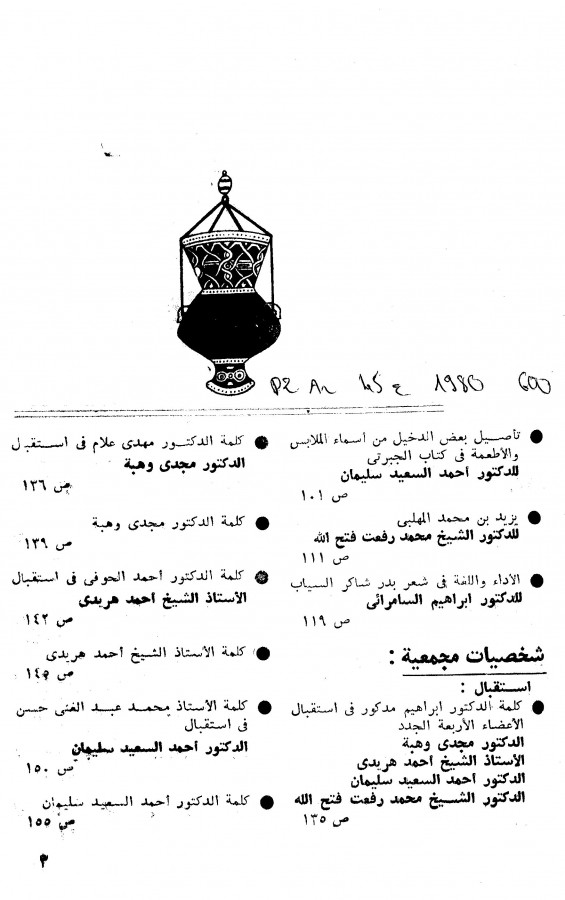 P2 Ar 45 ع 1980 600
● تأصيل بعض الدخيل من أسماء الملابس
والأطعمة فى كتاب الجبرتى
للدكتور أحمد السعيد سليمان
ص ١٠١
● يزيد بن محمد المهلبى
للدكتور الشيخ محمد رفعت فتح الله
ص ١١١
● الأداء واللغة فى شعر بدر شاكر السياب
للدكتور ابراهيم السامرائى
ص ١١٩
شخصيات مجمعية :
استقبال :
● كلمة الدكتور ابراهيم مدكور فى استقبال
الأعضاء الأربعة الجدد
الدكتور مجدى وهبة
الأستاذ الشيخ أحمد هريدى
الدكتور أحمد السعيد سليمان
الدكتور الشيخ محمد رفعت فتح الله
ص ١٣٥
● كلمة الدكتور مهدى علام فى استقبال
الدكتور مجدى وهبة
ص ١٣٦
● كلمة الدكتور مجدى وهبة
ص ١٣٩
● كلمة الدكتور أحمد الحوفى فى استقبال
الأستاذ الشيخ أحمد هريدى
ص ١٤٢
● كلمة الأستاذ الشيخ أحمد هريدى
ص ١٤٥
● كلمة الأستاذ محمد عبد الغنى حسن
فى استقبال
الدكتور أحمد السعيد سليمان
ص ١٥٠
● كلمة الدكتور أحمد السعيد سليمان
ص ١٥٥
٣